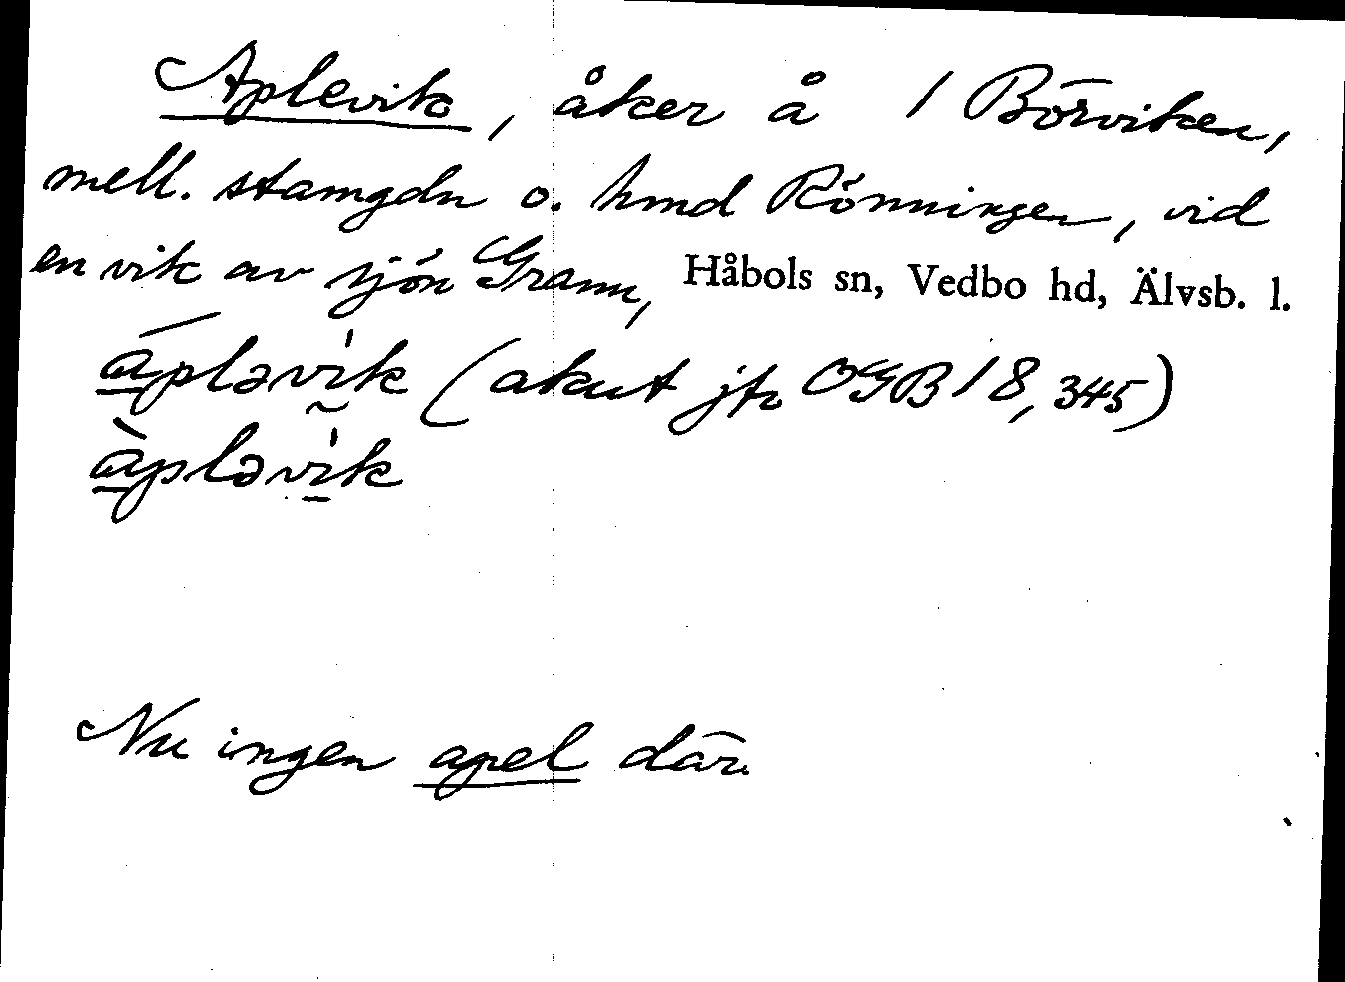 Aplevik, åker å 1 Börviken,
mell. stamgdn o. hmd Rönningen, vid
en vik av sjön Grann, Håbols sn, Vedbo hd, Älvsb. l.
ápləvìk (akut jfr OGB 18, 345)
àpləvìk
Nu ingen apel där.